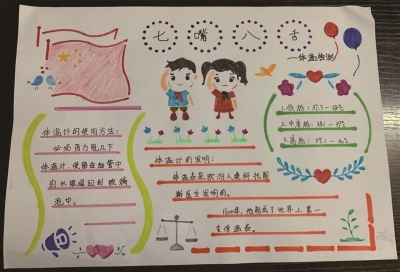 七嘴八舌
—体温检测
体温计的使用方法:
必须用力甩几下
体温计,使留在血管中
的水银退回到玻璃
泡中。
体温计的发明:
体温表是欧洲人
斯医生发明的。
1600年,他制成了世界上第一
支体温表。
1.低热:37.3—38℃
2.中度热:38.1—39℃
3.高热:39.1—41℃